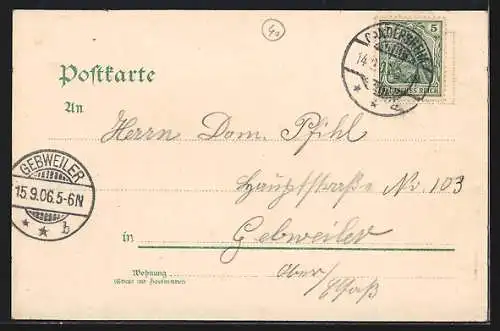 40
5
DEUTSCHES REICH
14.9.06
Postkarte
An
Herrn Dom. Pfihl
Hauptstraße Nr. 103
GEBWEILER
15.9.06.5-6N
* * b
in
Gebweiler
Wohnung
(Straße und Hausnummer)
Ober/
Elsaß